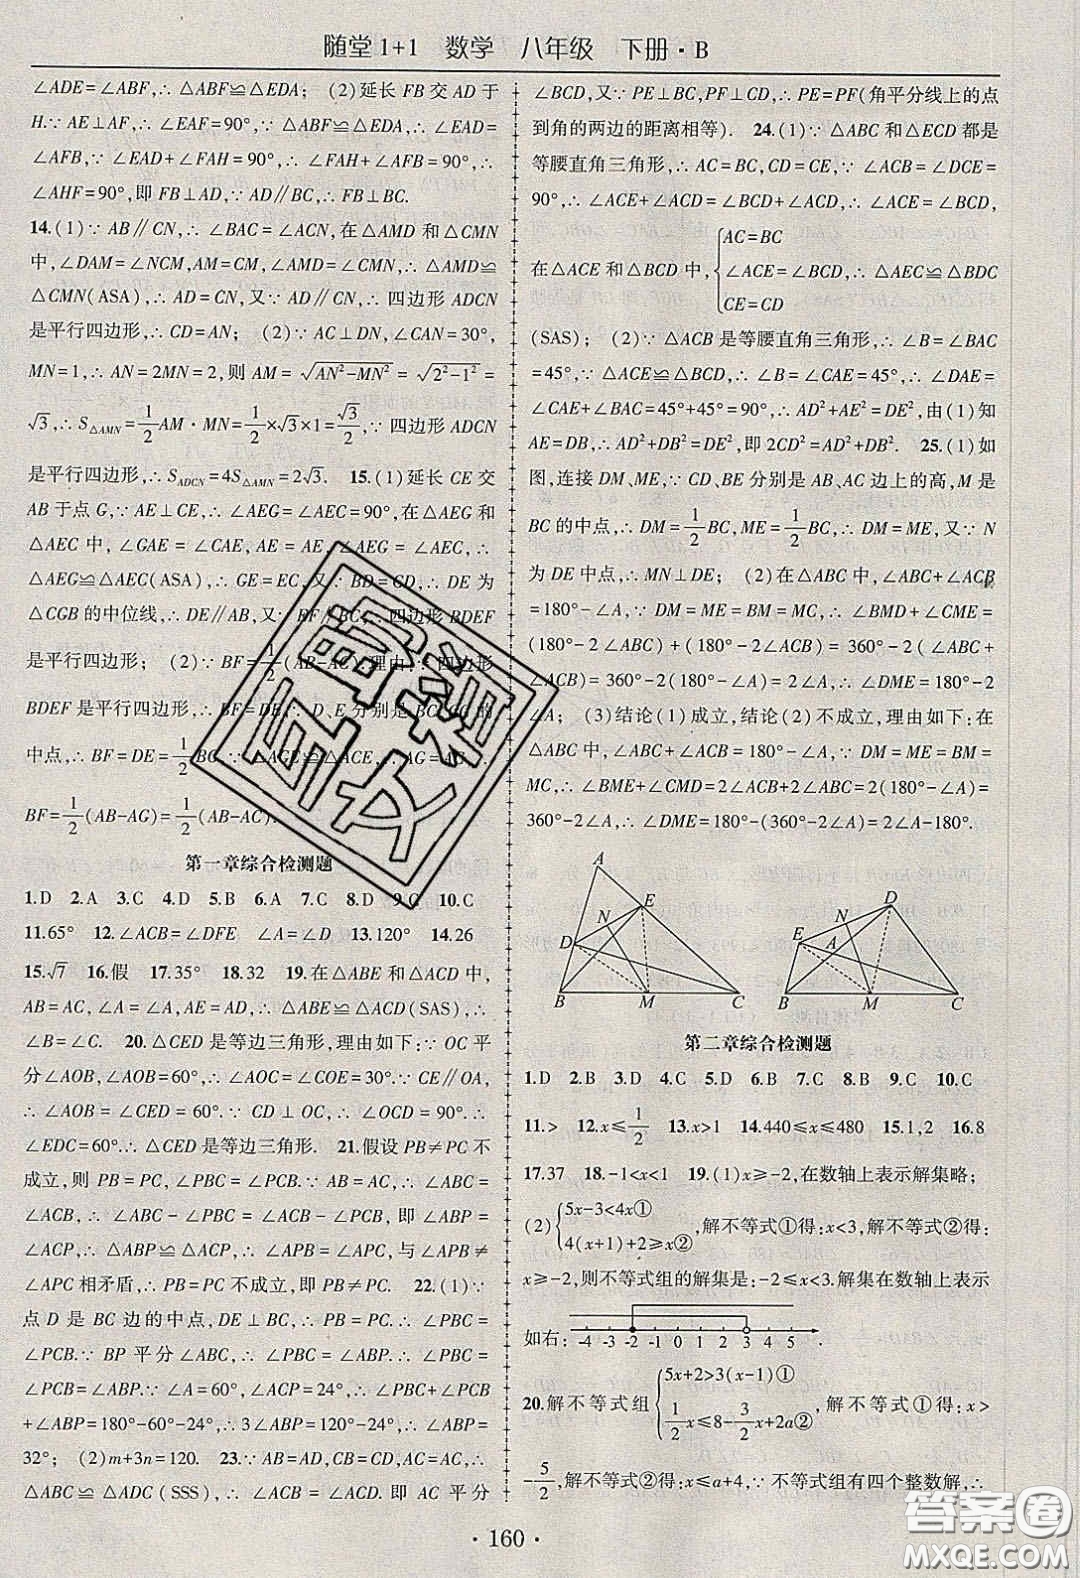 随堂1+1 数学 八年级 下册·B
∠ADE=∠ABF,∴△ABF≌△EDA；(2)延长FB交AD于
H.∵AE⊥AF,∴∠EAF=90°,∵△ABF≌△EDA,∴∠EAD=
∠AFB,∵∠EAD+∠FAH=90°,∴∠FAH+∠AFB=90°,∴
∠AHF=90°,即FB⊥AD,∵AD∥BC,∴FB⊥BC.
14.(1)∵AB∥CN,∴∠BAC=∠ACN,在△AMD和△CMN
中,∠DAM=∠NCM,AM=CM,∠AMD=∠CMN,∴△AMD≌
△CMN(ASA),∴AD=CN,又∵AD∥CN,∴四边形ADCN
是平行四边形,∴CD=AN；(2)∵AC⊥DN,∠CAN=30°,
MN=1,∴AN=2MN=2,则AM=√(AN²-MN²)=√(2²-1²)=
√3,∴S△AMN=1/2AM·MN=1/2×√3×1=√3/2,∵四边形ADCN
是平行四边形,∴S_ADCN=4S△AMN=2√3. 15.(1)延长CE交
AB于点G,∵AE⊥CE,∴∠AEG=∠AEC=90°,在△AEG和
△AEC中,∠GAE=∠CAE,AE=AE,∠AEG=∠AEC,∴
△AEG≌△AEC(ASA),∴GE=EC,又∵BD=CD,∴DE为
△CGB的中位线,∴DE∥AB,又∵EF∥BC,∴四边形BDEF
是平行四边形；(2)∵BF=1/2(AB-AC),理由:∵四边形
BDEF是平行四边形,∴BF=DE,∵D、E分别是BC、GC的
中点,∴BF=DE=1/2BG,∵△AGE≌△ACE,∴AG=AC,∴
BF=1/2(AB-AG)=1/2(AB-AC).
第一章综合检测题
1.D 2.A 3.C 4.D 5.B 6.A 7.C 8.D 9.C 10.C
11.65° 12.∠ACB=∠DFE ∠A=∠D 13.120° 14.26
15.√7 16.假 17.35° 18.32 19.在△ABE和△ACD中,
AB=AC,∠A=∠A,AE=AD,∴△ABE≌△ACD(SAS),∴
∠B=∠C. 20.△CED是等边三角形,理由如下:∵OC平
分∠AOB,∠AOB=60°,∴∠AOC=∠COE=30°.∵CE∥OA,
∴∠AOB=∠CED=60°.∵CD⊥OC,∴∠OCD=90°,∴
∠EDC=60°.∴△CED是等边三角形. 21.假设PB≠PC不
成立,则PB=PC,∠PBC=∠PCB.∵AB=AC,∴∠ABC=
∠ACB,∴∠ABC-∠PBC=∠ACB-∠PCB,即∠ABP=
∠ACP,∴△ABP≌△ACP,∴∠APB=∠APC,与∠APB≠
∠APC相矛盾,∴PB=PC不成立,即PB≠PC. 22.(1)∵
点D是BC边的中点,DE⊥BC,∴PB=PC.∴∠PBC=
∠PCB.∵BP平分∠ABC,∴∠PBC=∠ABP,∴∠PBC=
∠PCB=∠ABP.∵∠A=60°,∠ACP=24°,∴∠PBC+∠PCB
+∠ABP=180°-60°-24°,∴3∠ABP=120°-24°,∴∠ABP=
32°；(2)m+3n=120. 23.∵CB=CD,AB=AD,AC=AC,∴
△ABC≌△ADC(SSS),∴∠BCA=∠ACD.即AC平分
∠BCD,又∵PE⊥BC,PF⊥CD,∴PE=PF(角平分线上的点
到角的两边的距离相等). 24.(1)∵△ABC和△ECD都是
等腰直角三角形,∴AC=BC,CD=CE,∵∠ACB=∠DCE=
90°,∴∠ACE+∠ACD=∠BCD+∠ACD,∴∠ACE=∠BCD,
在△ACE和△BCD中,{AC=BC
∠ACE=∠BCD,∴△AEC≌△BDC
CE=CD
(SAS)；(2)∵△ACB是等腰直角三角形,∴∠B=∠BAC
=45°,∵△ACE≌△BCD,∴∠B=∠CAE=45°,∴∠DAE=
∠CAE+∠BAC=45°+45°=90°,∴AD²+AE²=DE²,由(1)知
AE=DB,∴AD²+DB²=DE²,即2CD²=AD²+DB². 25.(1)如
图,连接DM、ME,∵CD、BE分别是AB、AC边上的高,M是
BC的中点,∴DM=1/2BC,ME=1/2BC,∴DM=ME,又∵N
为DE中点,∴MN⊥DE；(2)在△ABC中,∠ABC+∠ACB
=180°-∠A,∵DM=ME=BM=MC,∴∠BMD+∠CME=
(180°-2∠ABC)+(180°-2∠ACB)=360°-2(∠ABC+
∠ACB)=360°-2(180°-∠A)=2∠A,∴∠DME=180°-2
∠A；(3)结论(1)成立,结论(2)不成立,理由如下:在
△ABC中,∠ABC+∠ACB=180°-∠A,∵DM=ME=BM=
MC,∴∠BME+∠CMD=2∠ACB+2∠ABC=2(180°-∠A)=
360°-2∠A,∴∠DME=180°-(360°-2∠A)=2∠A-180°.
A
E
N
D
B M C
N D
E A
B M C
第二章综合检测题
1.D 2.B 3.D 4.C 5.D 6.B 7.D 8.B 9.C 10.C
11.> 12.x≤1/2 13.x>1 14.440≤x≤480 15.1,2 16.8
17.37 18.-1<x<1 19.(1)x≥-2,在数轴上表示解集略；
(2){5x-3<4x①
4(x+1)+2≥x②,解不等式①得:x<3,解不等式②得:
x≥-2,则不等式组的解集是:-2≤x<3.解集在数轴上表示
如右: -4 -3 -2 -1 0 1 2 3 4 5 .
20.解不等式组{5x+2>3(x-1)①
1/2x≤8-3/2x+2a②,解不等式①得:x>
-5/2,解不等式②得:x≤a+4,∵不等式组有四个整数解,∴
·160·
答案圈
MXQE.COM